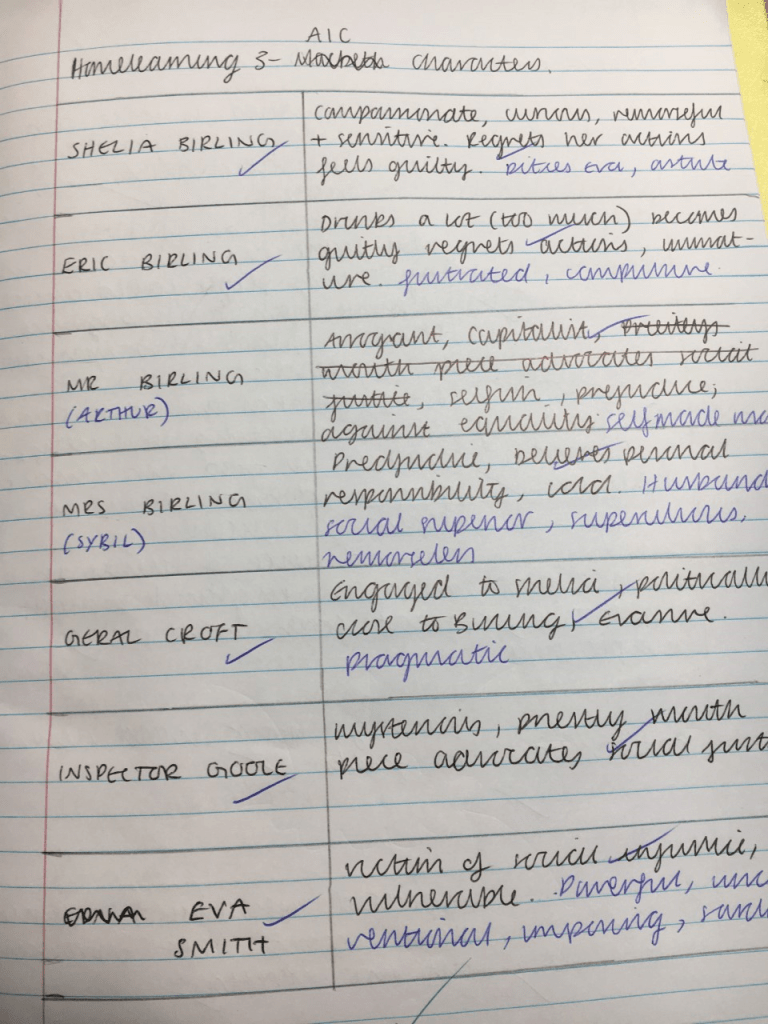 AIC
Homelearning 3- Macbeth characters.
SHELIA BIRLING
compassionate, curious, remorseful
+ sensitive. Regrets her actions
feels guilty. Pities Eva, astute
ERIC BIRLING
Drinks a lot (too much) becomes
guitly regrets actions, immat-
ure. frustrated, compulsive.
MR BIRLING
(ARTHUR)
Arrogant, capitalist, Prieitlys
mouth piece advocates social
justice, selfish, prejudice,
against equality self made
MRS BIRLING
(SYBIL)
Predjudice, believes personal
responsibility, cold. Husband
social superior, supercilious,
remorseless
GERAL CROFT
Engaged to shelia, politically
close to Birling, evasive.
pragmatic
INSPECTOR GOOLE
mysterious, priestly mouth
piece advocates social
EVA
SMITH
victim of social injustice,
vulnerable. Powerful,
ventional, imposing,